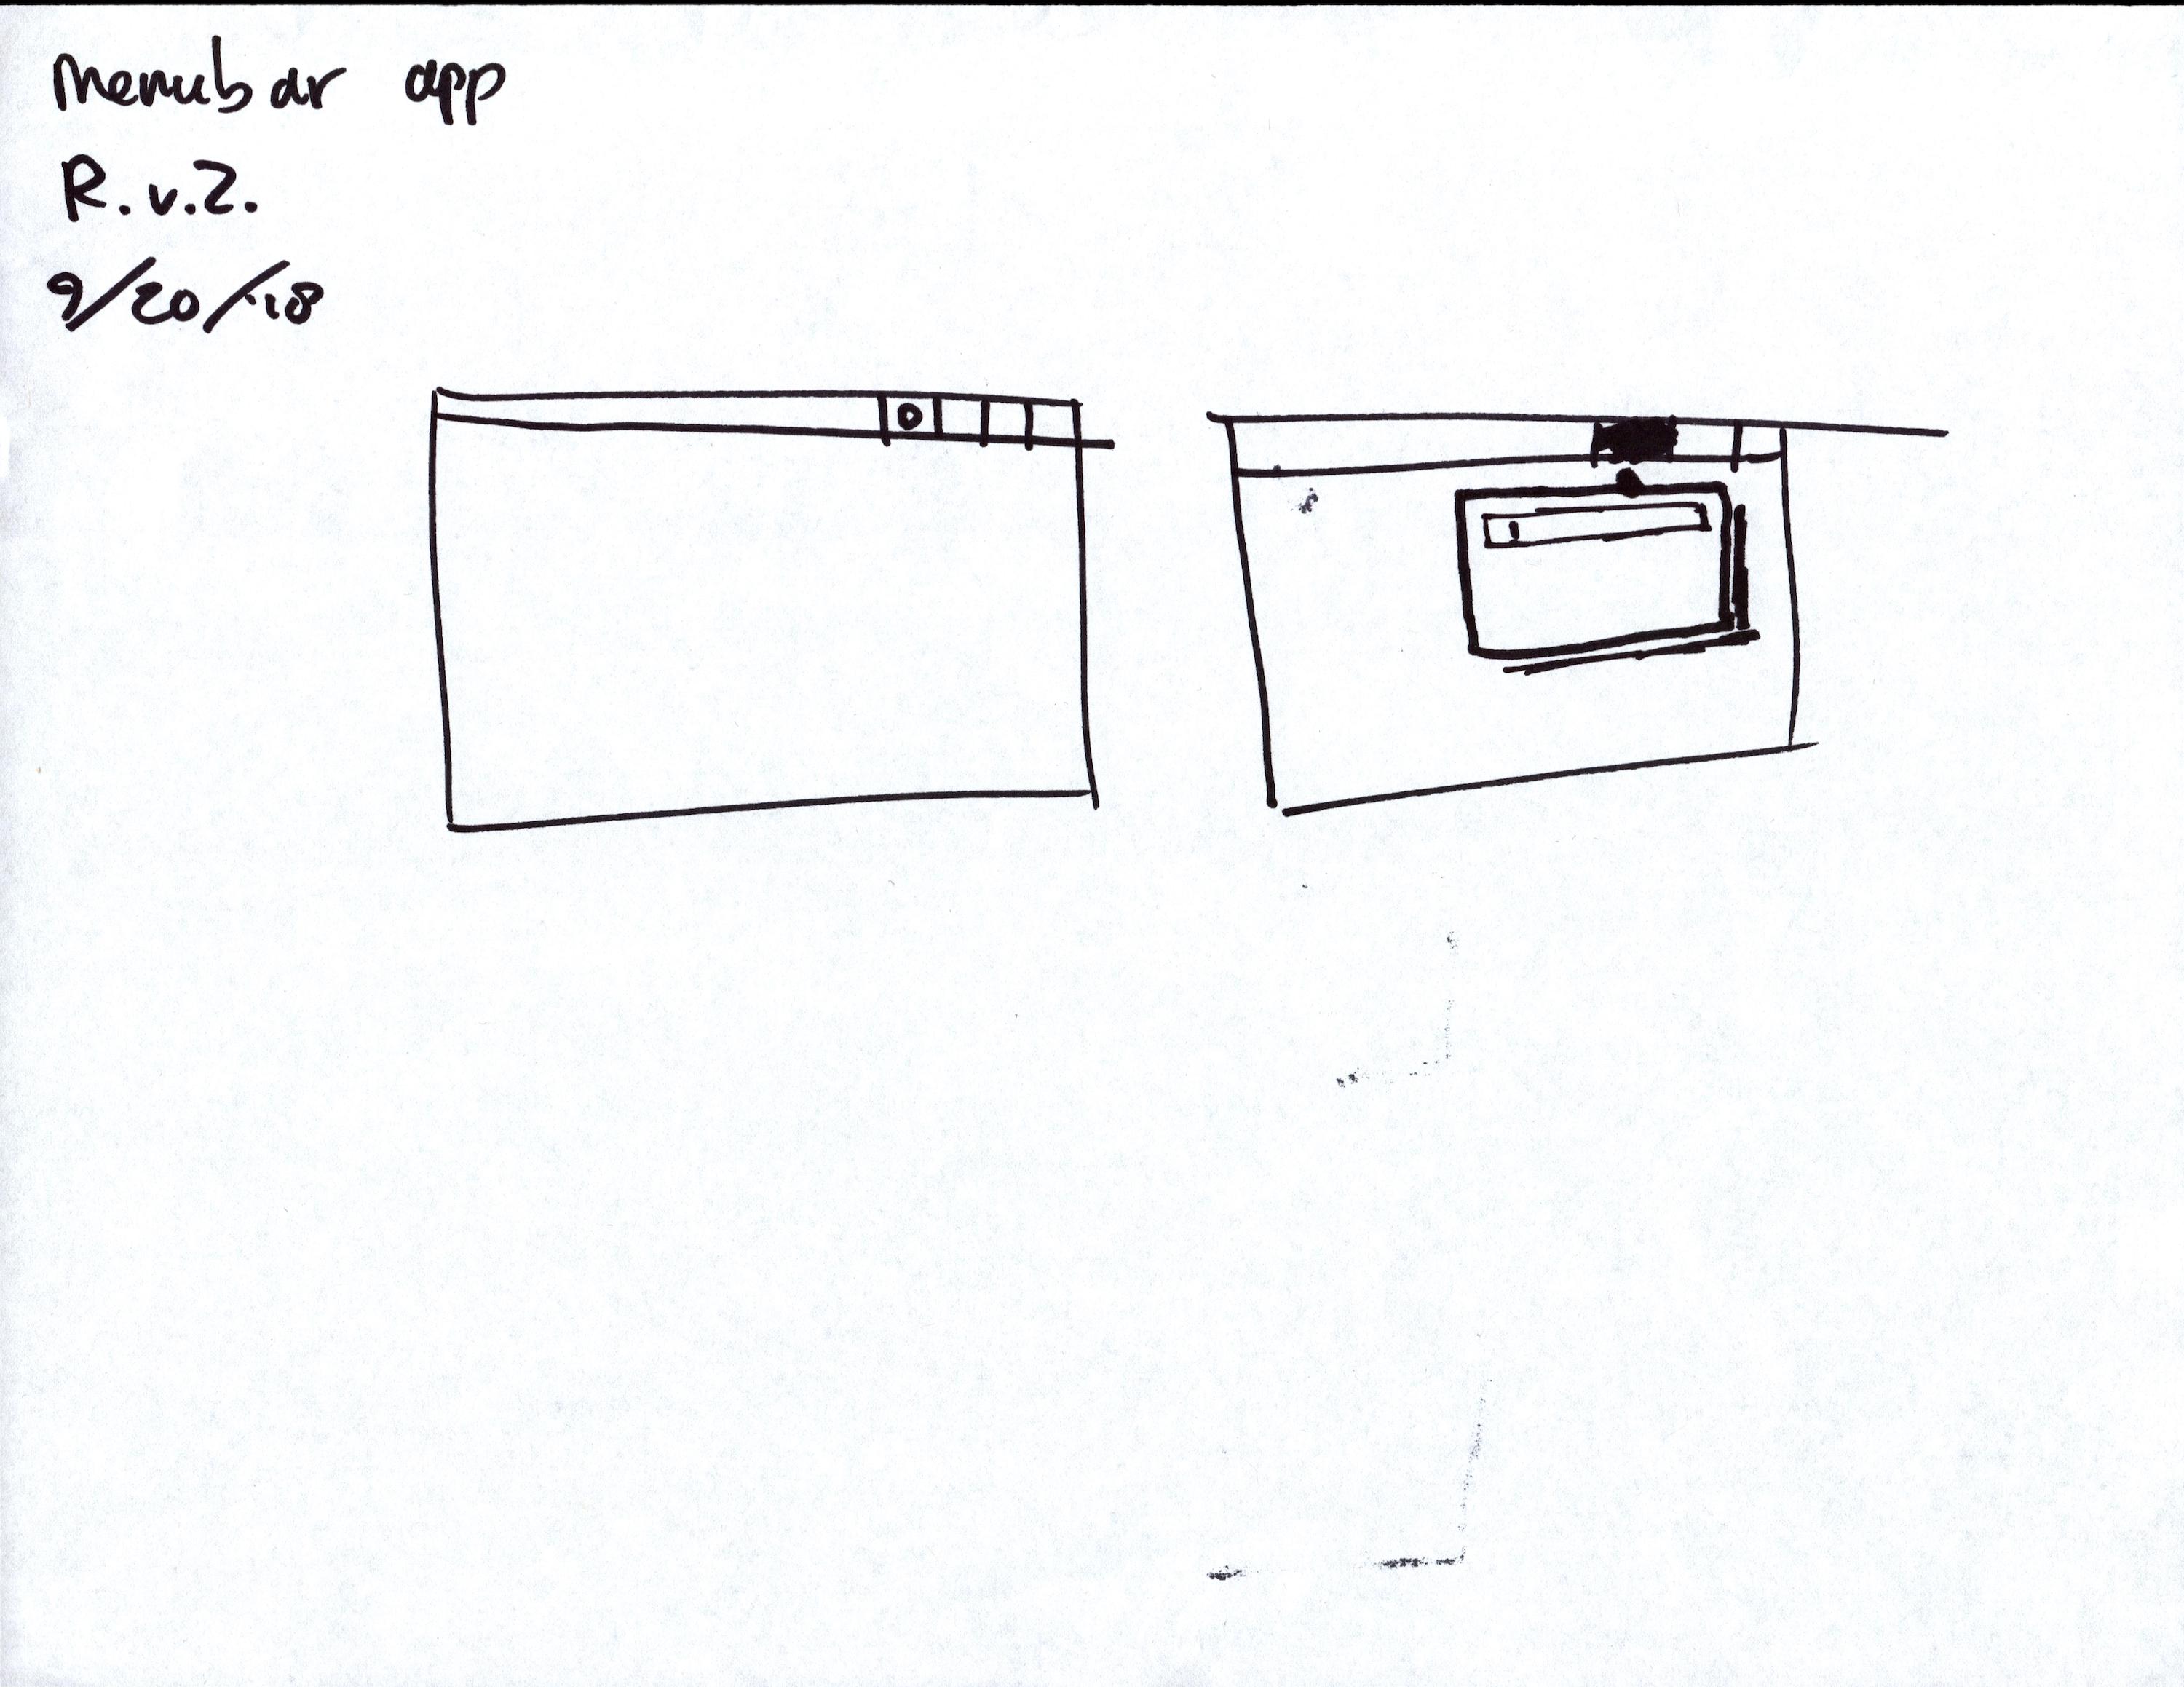 Menubar app
R.v.Z.
9/20/18